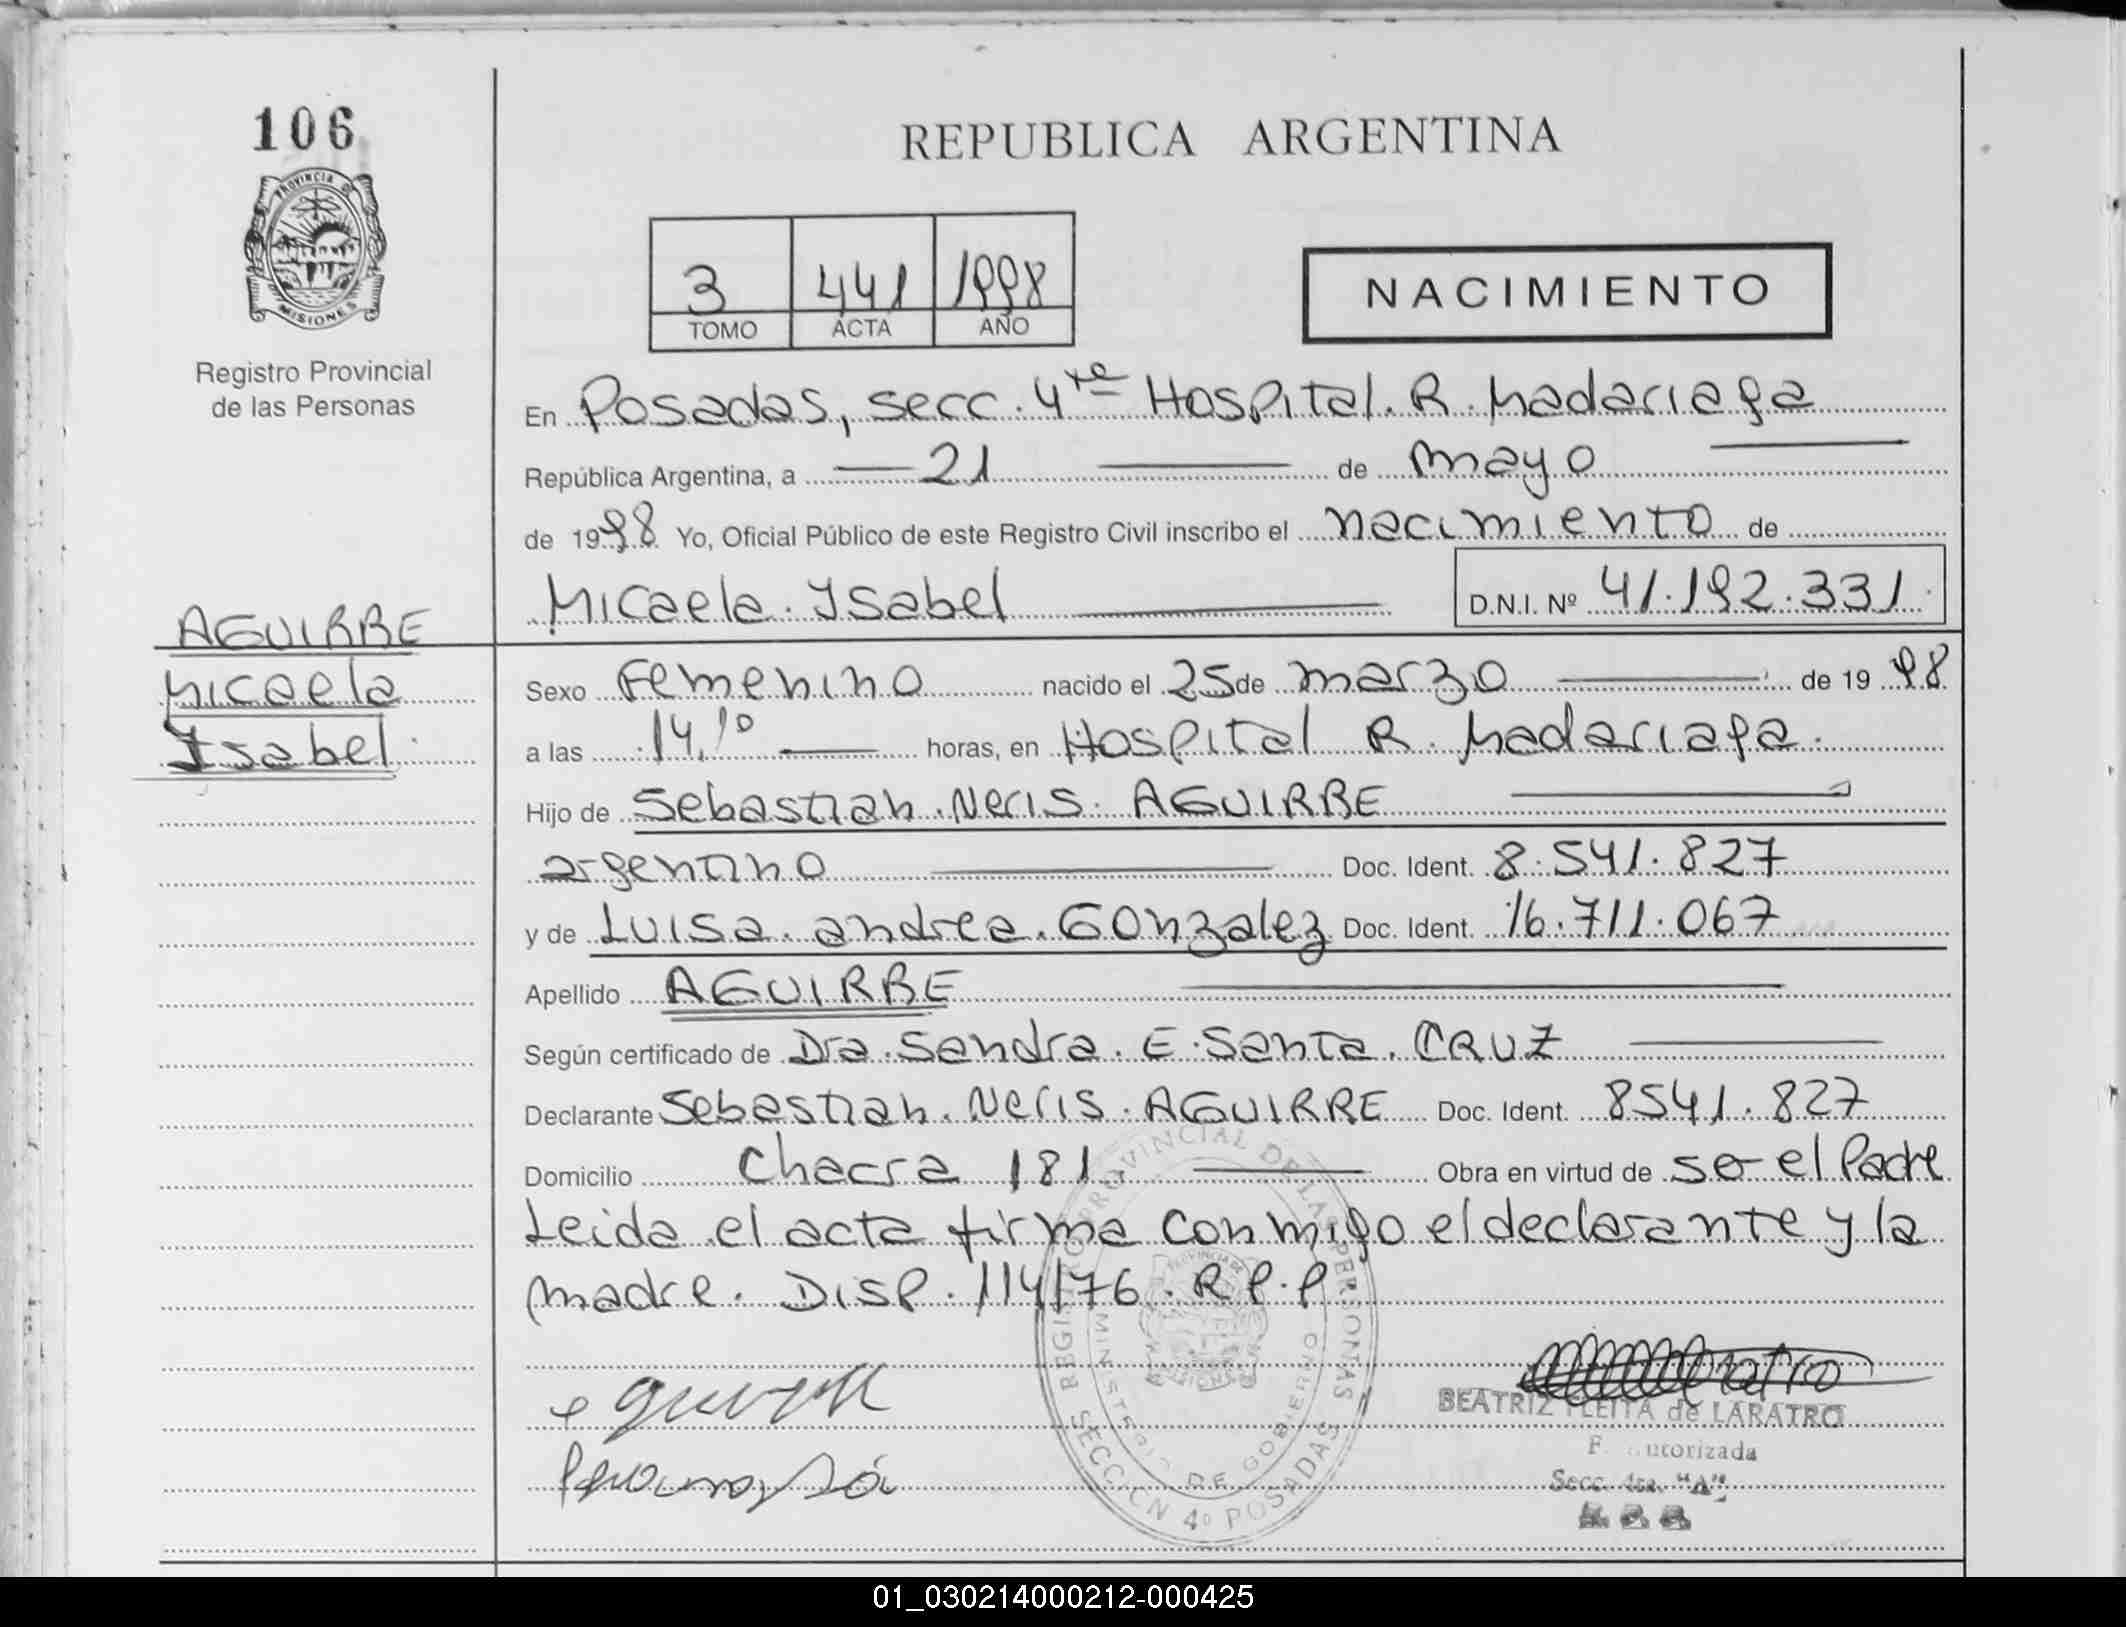 106
REPUBLICA ARGENTINA
PROVINCIA DE
MISIONES
Registro Provincial
de las Personas
3 441 1998
TOMO ACTA AÑO
NACIMIENTO
En Posadas, secc. 4ta Hospital. R. Madariaga
República Argentina, a 21 de mayo
de 1998 Yo, Oficial Público de este Registro Civil inscribo el nacimiento de
Micaela. Isabel D.N.I. Nº 41.192.331
AGUIRRE
Micaela
Isabel
Sexo Femenino nacido el 25 de marzo de 1998
a las 14,10 horas, en Hospital R. Madariaga.
Hijo de Sebastian. Neris. AGUIRRE
argentino Doc. Ident. 8.541.827
y de Luisa. andrea. Gonzalez Doc. Ident. 16.711.067
Apellido AGUIRRE
Según certificado de Dra. Sandra. E. Santa. CRUZ
Declarante Sebastian. Neris. AGUIRRE Doc. Ident. 8541.827
Domicilio Chacra 181. Obra en virtud de ser el Padre
Leida el acta firma conmigo el declarante y la
madre. Disp. 114/76. R.P.P
REGISTRO PROVINCIAL DE LAS PERSONAS
MINISTERIO DE GOBIERNO
SECCION 4º POSADAS
BEATRIZ FLEITA de LARATRO
F. utorizada
Secc. 4ta. "A"
01_030214000212-000425